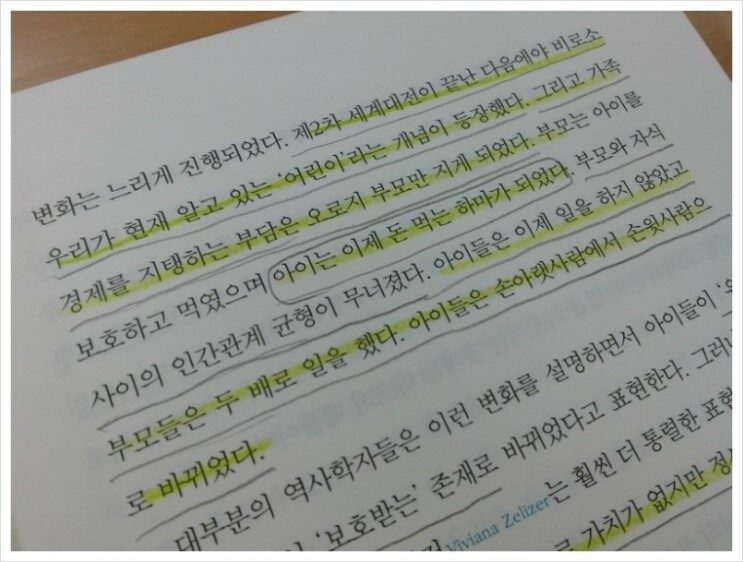 변화는 느리게 진행되었다. 제2차 세계대전이 끝난 다음에야 비로소
우리가 현재 알고 있는 ‘어린이’라는 개념이 등장했다. 그리고 가족
경제를 지탱하는 부담은 오로지 부모만 지게 되었다. 부모는 아이를
보호하고 먹였으며 아이는 이제 돈 먹는 하마가 되었다. 부모와 자식
사이의 인간관계 균형이 무너졌다. 아이들은 이제 일을 하지 않았고
부모들은 두 배로 일을 했다. 아이들은 손아랫사람에서 손윗사람으
로 바뀌었다.
대부분의 역사학자들은 이런 변화를 설명하면서 아이들이
‘보호받는’ 존재로 바뀌었다고 표현한다. 그러나
Viviana Zelizer는 훨씬 더 통렬한 표현
가치가 없지만